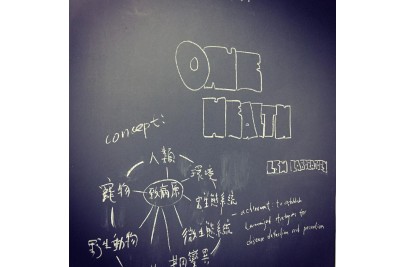 ONE
HEALTH
concept:
人類
環境
寵物
致病原
野生動物
微生態系統
- achievement: to establish
strategies for
disease detection and prevention